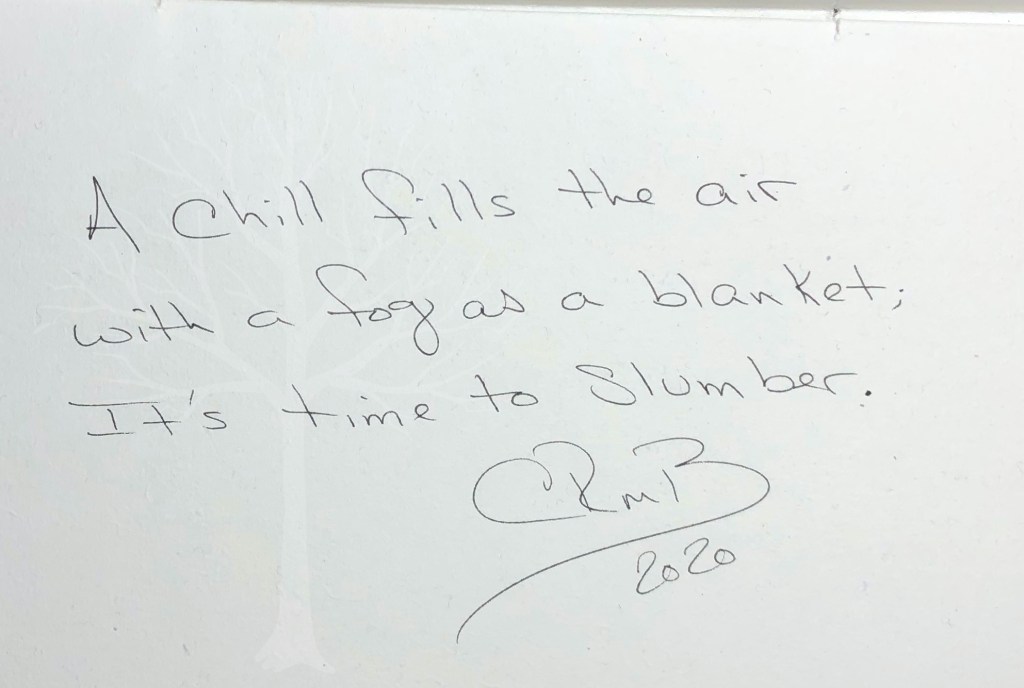 A Chill fills the air
with a fog as a blanket;
It's time to Slumber.
CRmB
2020